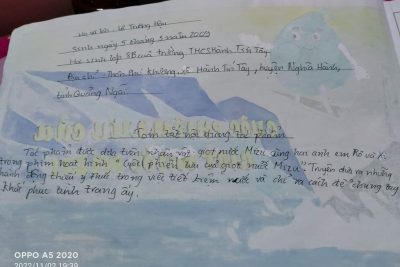 Họ và tên: Lê Trường
Sinh ngày 5 tháng 3 năm 2009
Học sinh lớp 8B của trường THCS Hành Tín Tây
Địa chỉ: Thôn Phú Khương, xã Hành Tín Tây, huyện Nghĩa Hành,
tỉnh Quảng Ngãi
Tóm tắt nội dung tác phẩm
Tác phẩm được dựa trên nhân vật giọt nước Mizu cùng hai anh em Rô và Xi
trong phim hoạt hình Cuộc phiêu lưu của giọt nước Mizu. Truyện đưa ra những
hành động thiếu ý thức trong việc tiết kiệm nước và chỉ ra cách để chung tay
khắc phục tình trạng ấy.
OPPO A5 2020
2022/11/02 19:39